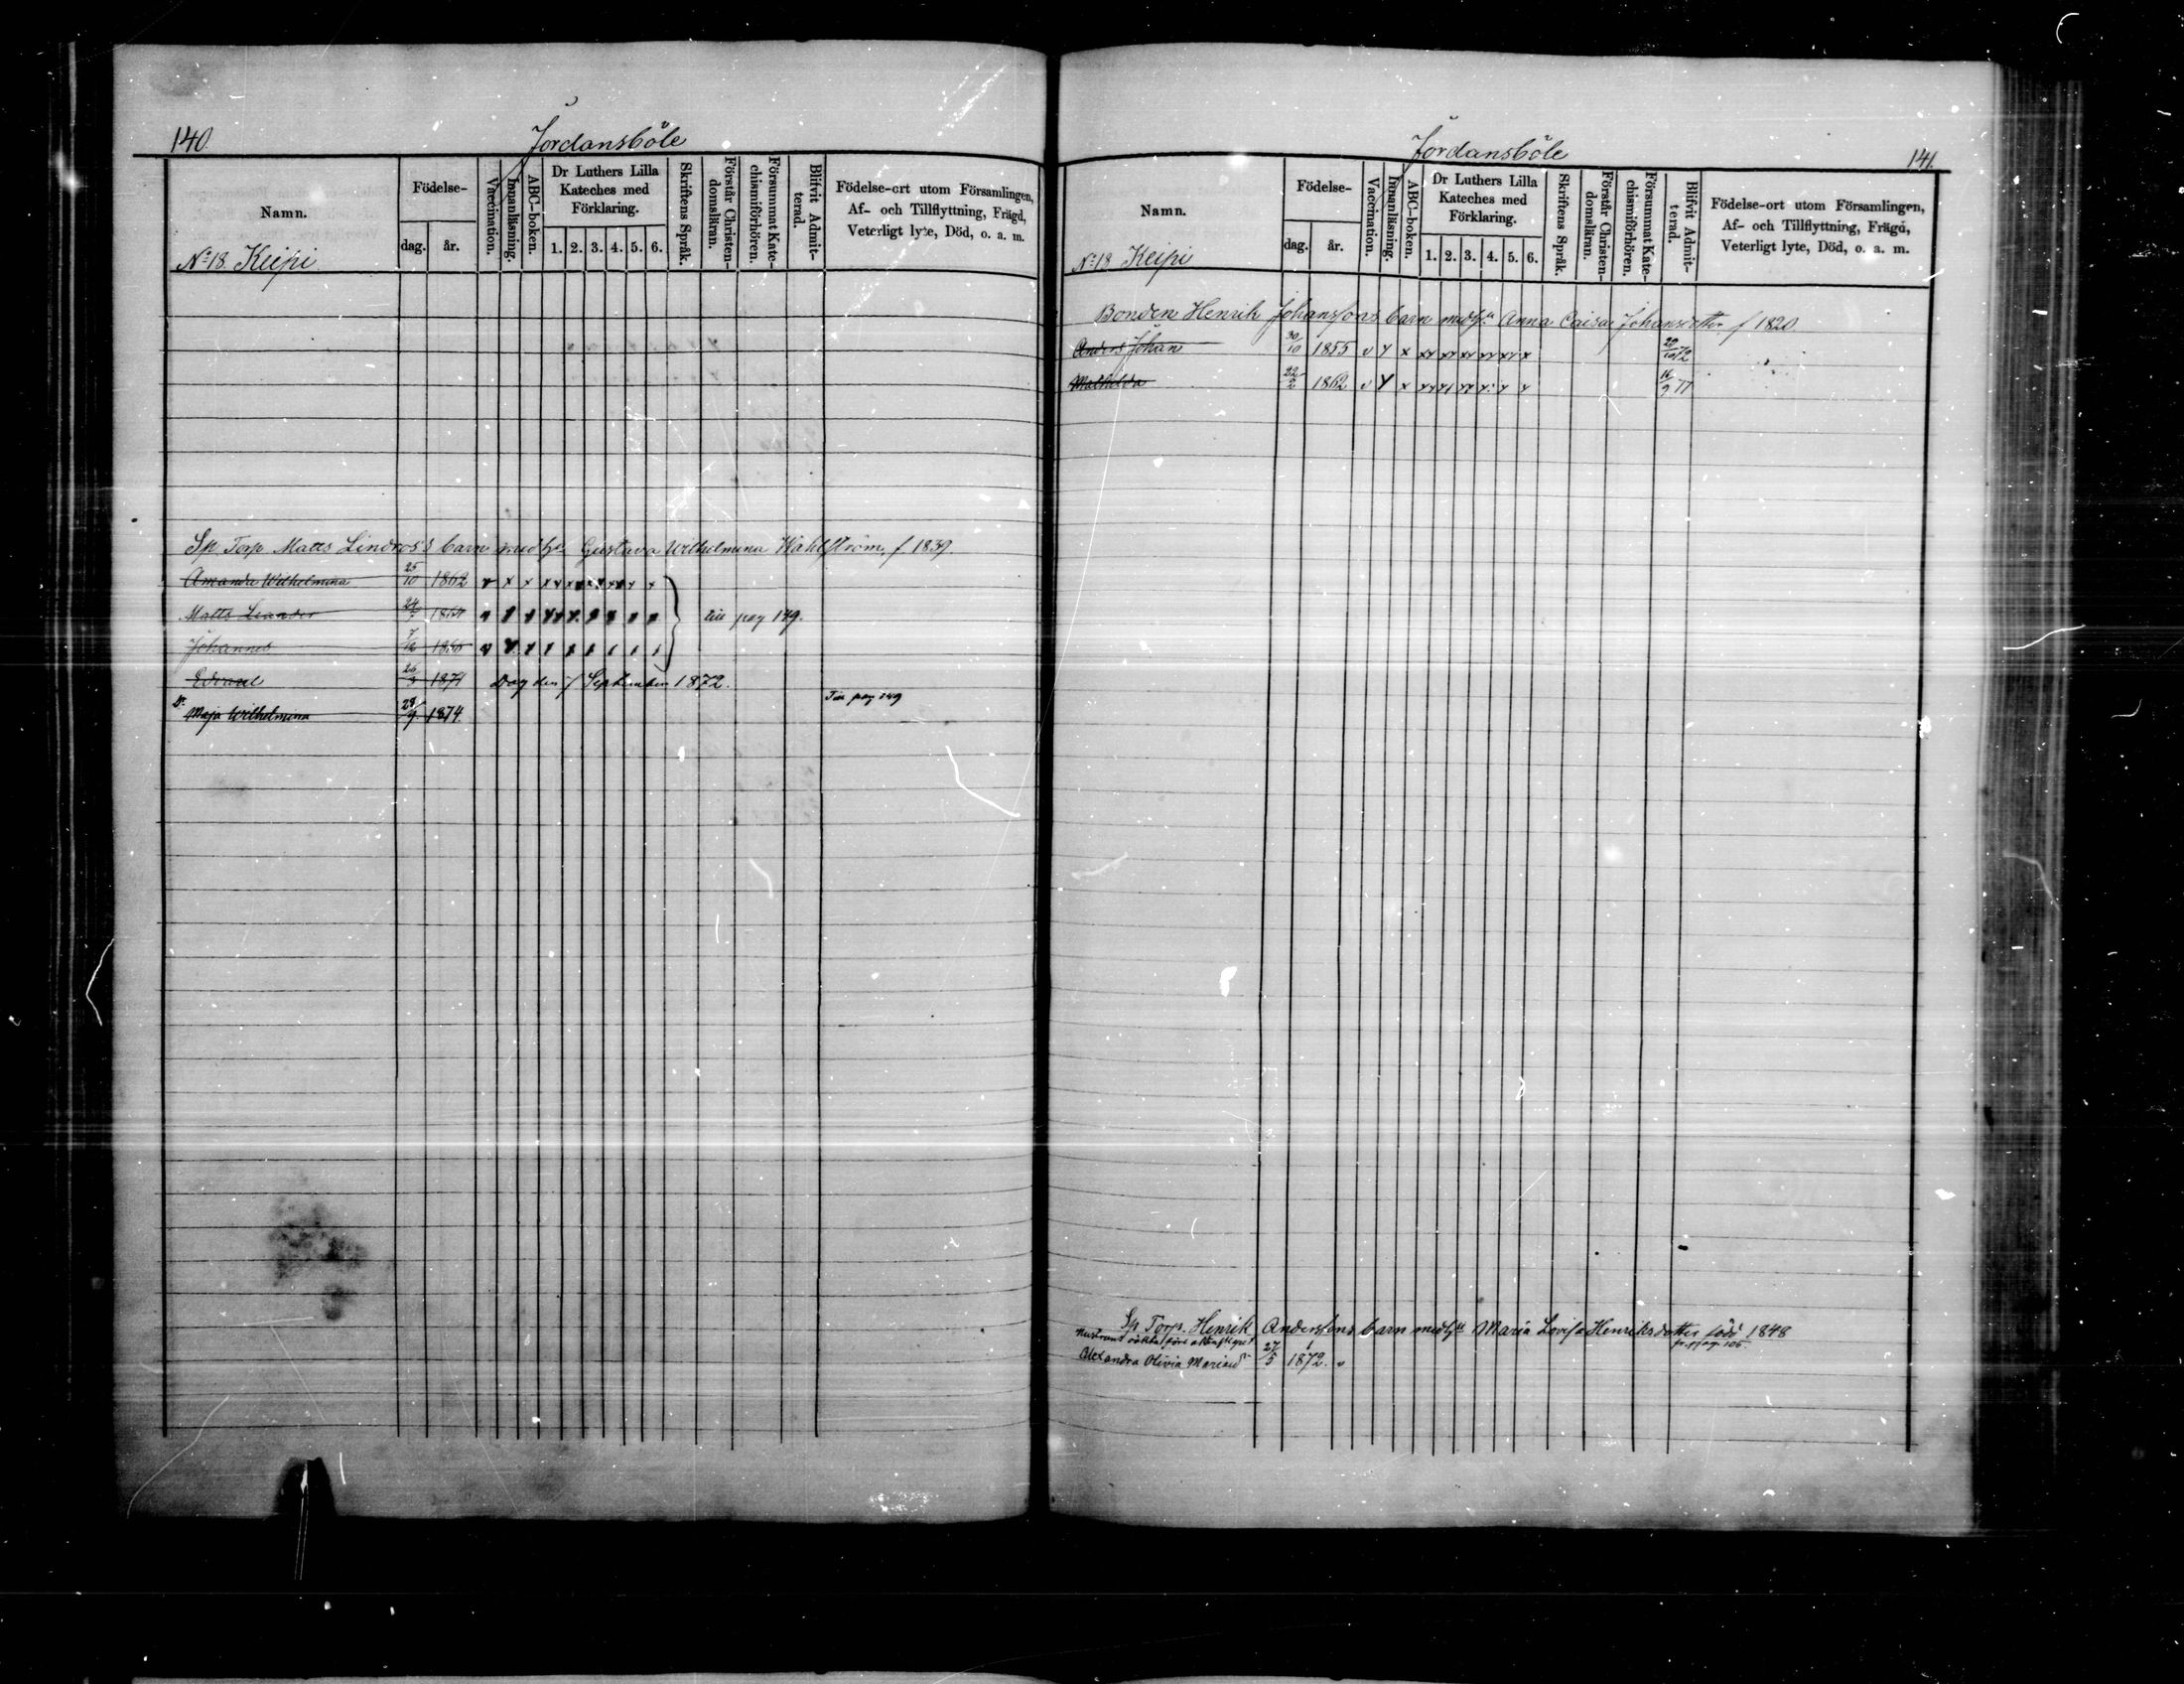 140.
Jordansböle
Namn.
Födelse-
dag.
år.
Vaccination.
Innanläsning.
ABC-boken.
Dr Luthers Lilla Kateches med Förklaring.
1. 2. 3. 4. 5. 6.
Skriftens Språk.
Förstår Christen-domsläran.
Försummat Kate-chismiförhören.
Blifvit Admit-terad.
Födelse-ort utom Församlingen, Af- och Tillflyttning, Frägd, Veterligt lyte, Död, o. a. m.
No 18. Keipi
Sp Torp Matts Lindros's barn medh. Gustava Wilhelmina Wahlström, f 1839.
Amanda Wilhelmina 25/10 1862 v x x
Matts Leander 24/ 1864 till pag 149.
Johannes 7/12
Edvard 26/3 1871 Dog den September 1872.
Dr Maja Wilhelmina 28/9 1874. Till pag 149
Jordansböle
141.
Namn.
Födelse-
dag.
år.
Vaccination.
Innanläsning.
ABC-boken.
Dr Luthers Lilla Kateches med Förklaring.
1. 2. 3. 4. 5. 6.
Skriftens Språk.
Förstår Christen-domsläran.
Försummat Kate-chismiförhören.
Blifvit Admit-terad.
Födelse-ort utom Församlingen, Af- och Tillflyttning, Frägd, Veterligt lyte, Död, o. a. m.
No 18 Keipi
Bonden Henrik Johanssons barn medh. Anna Caisa Johansdotter f 1820
Anders Johan 30/10 1855 v 20/10 72
Mathilda 22/2 1862 v 16/9 77
Sp Torp. Henrik Anderssons barn medh. Maria Lovisa Henriksdotter född 1848
Hustruns oäkta före
Alexandra Olivia Mariasdr 27/5 1872. v